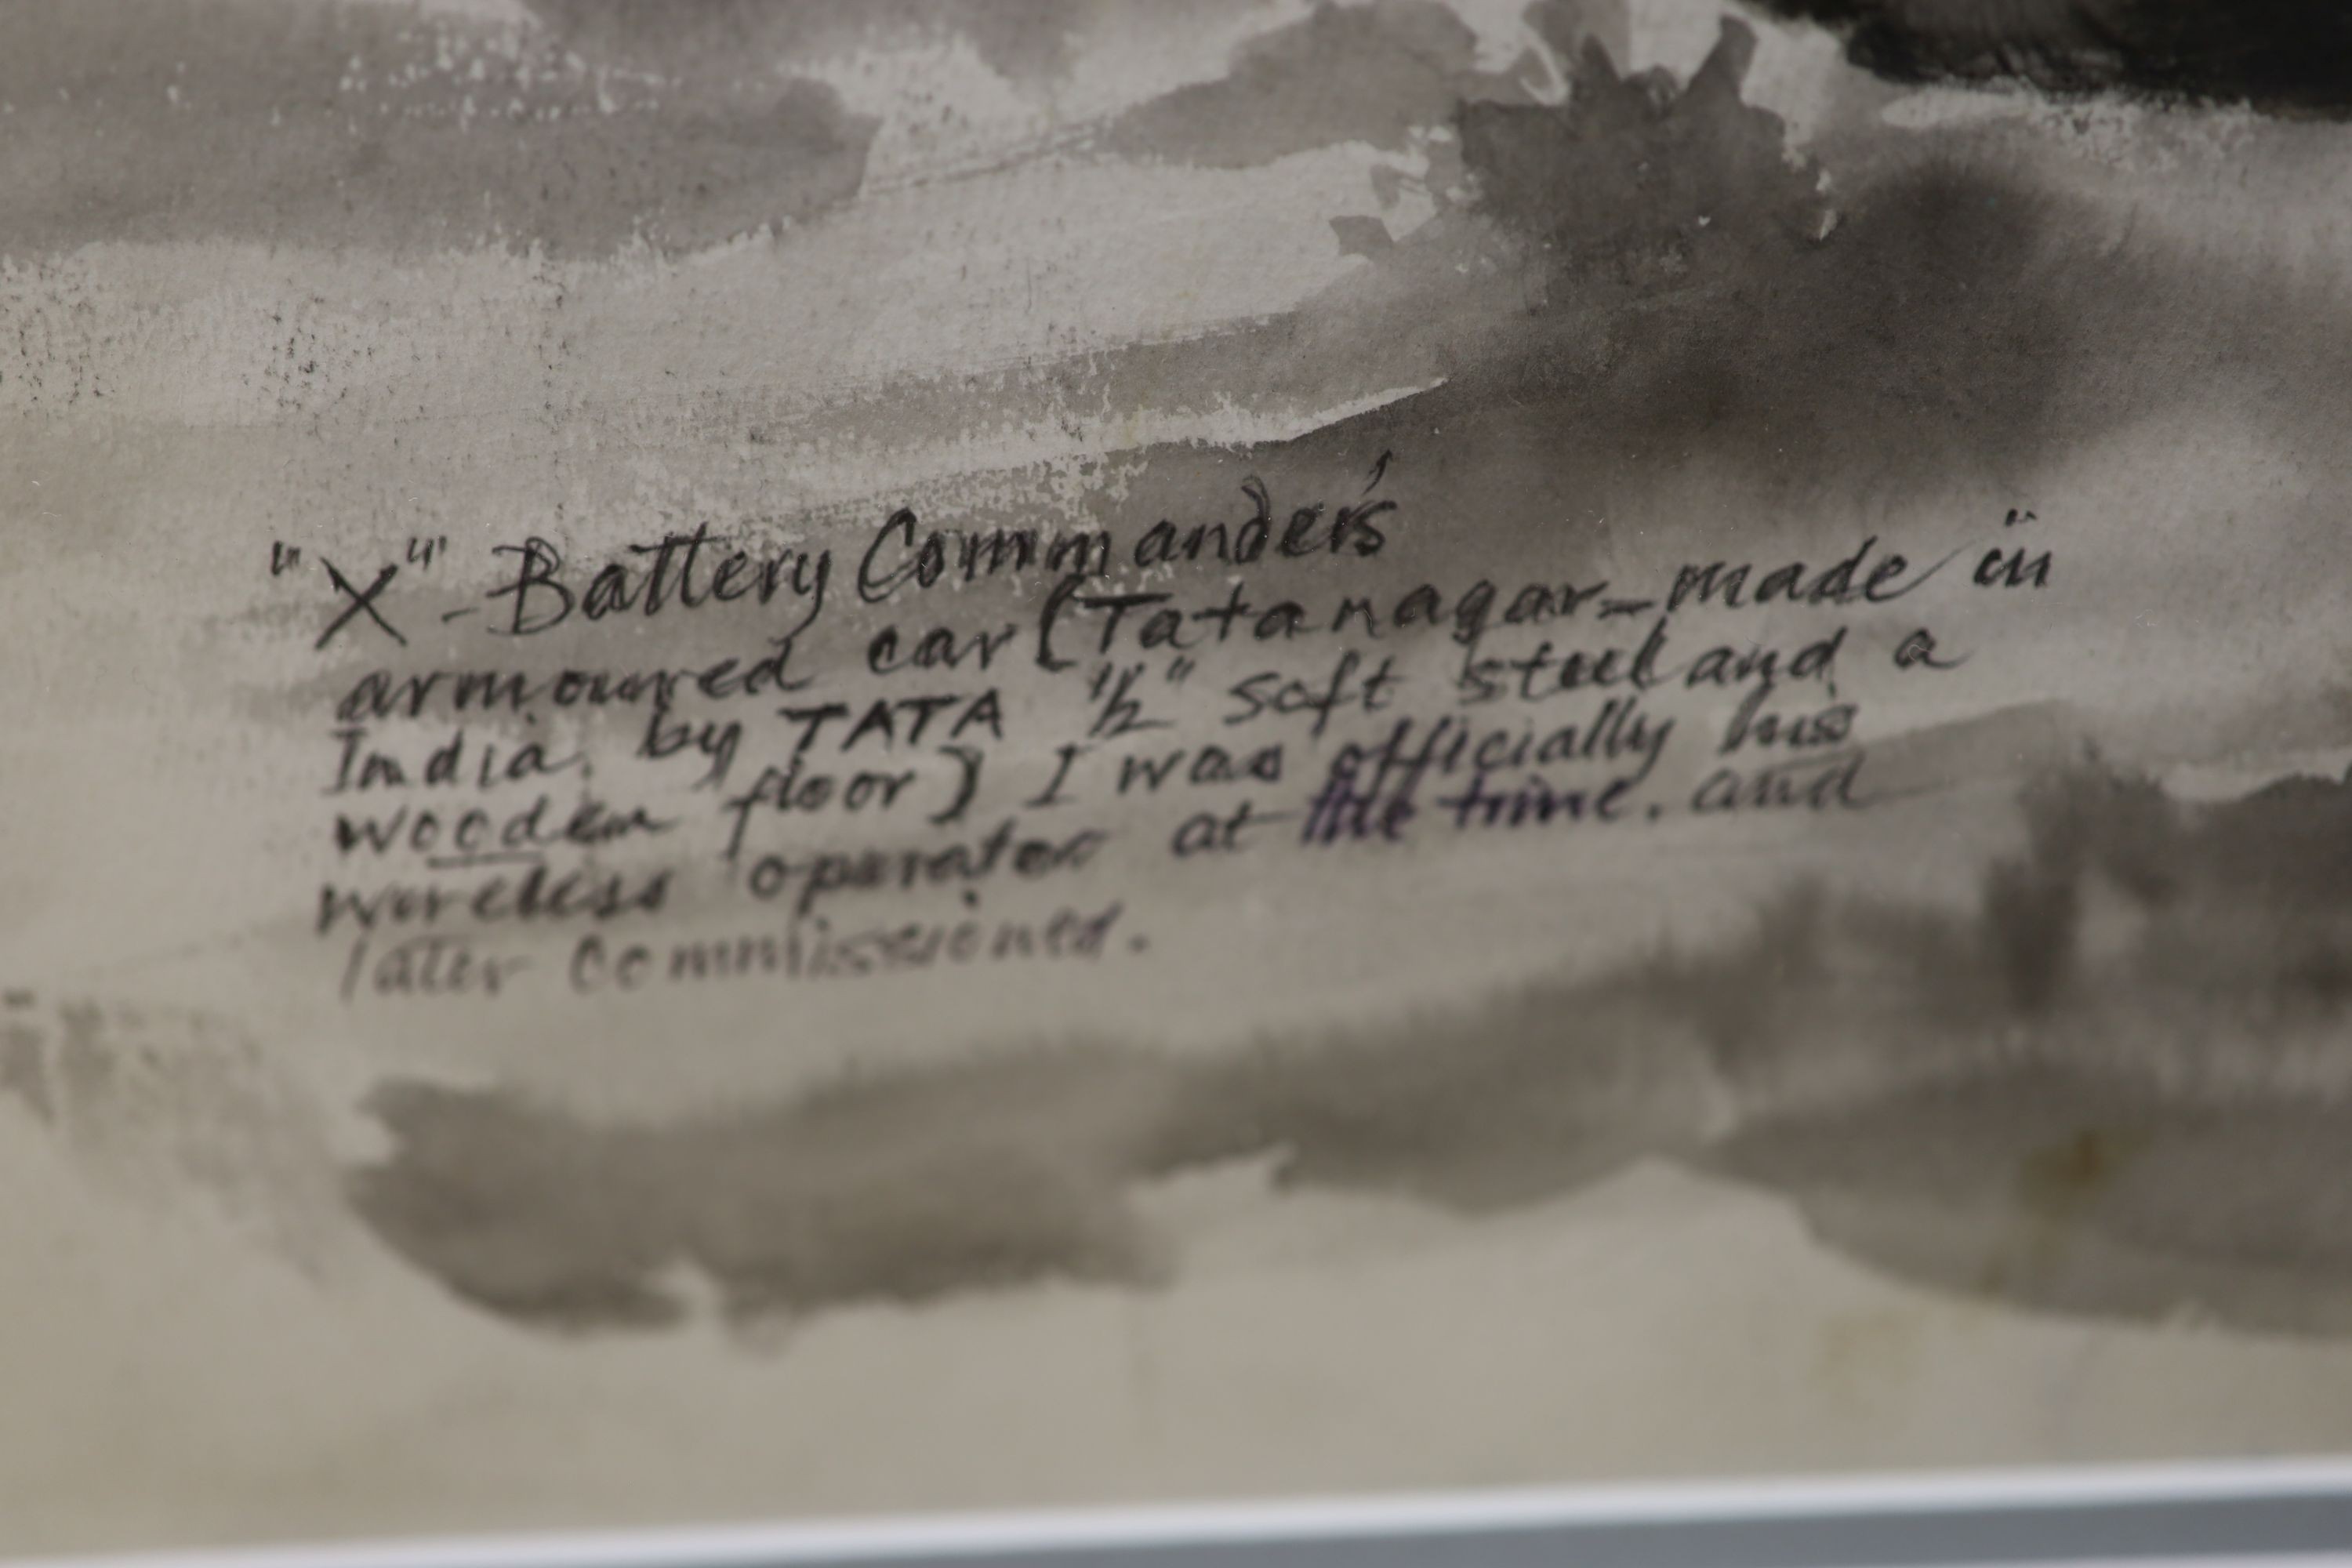 "X" - Battery Commander's
armoured car (Tatanagar - made in
India by TATA 1/2" soft steel and a
wooden floor) I was officially his
wireless operator at the time. and
later commissioned.